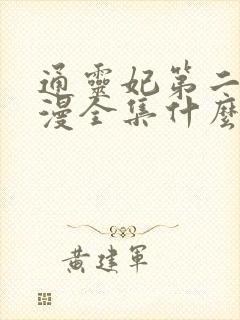 通靈妃第二
漫全集什麼
黃建軍